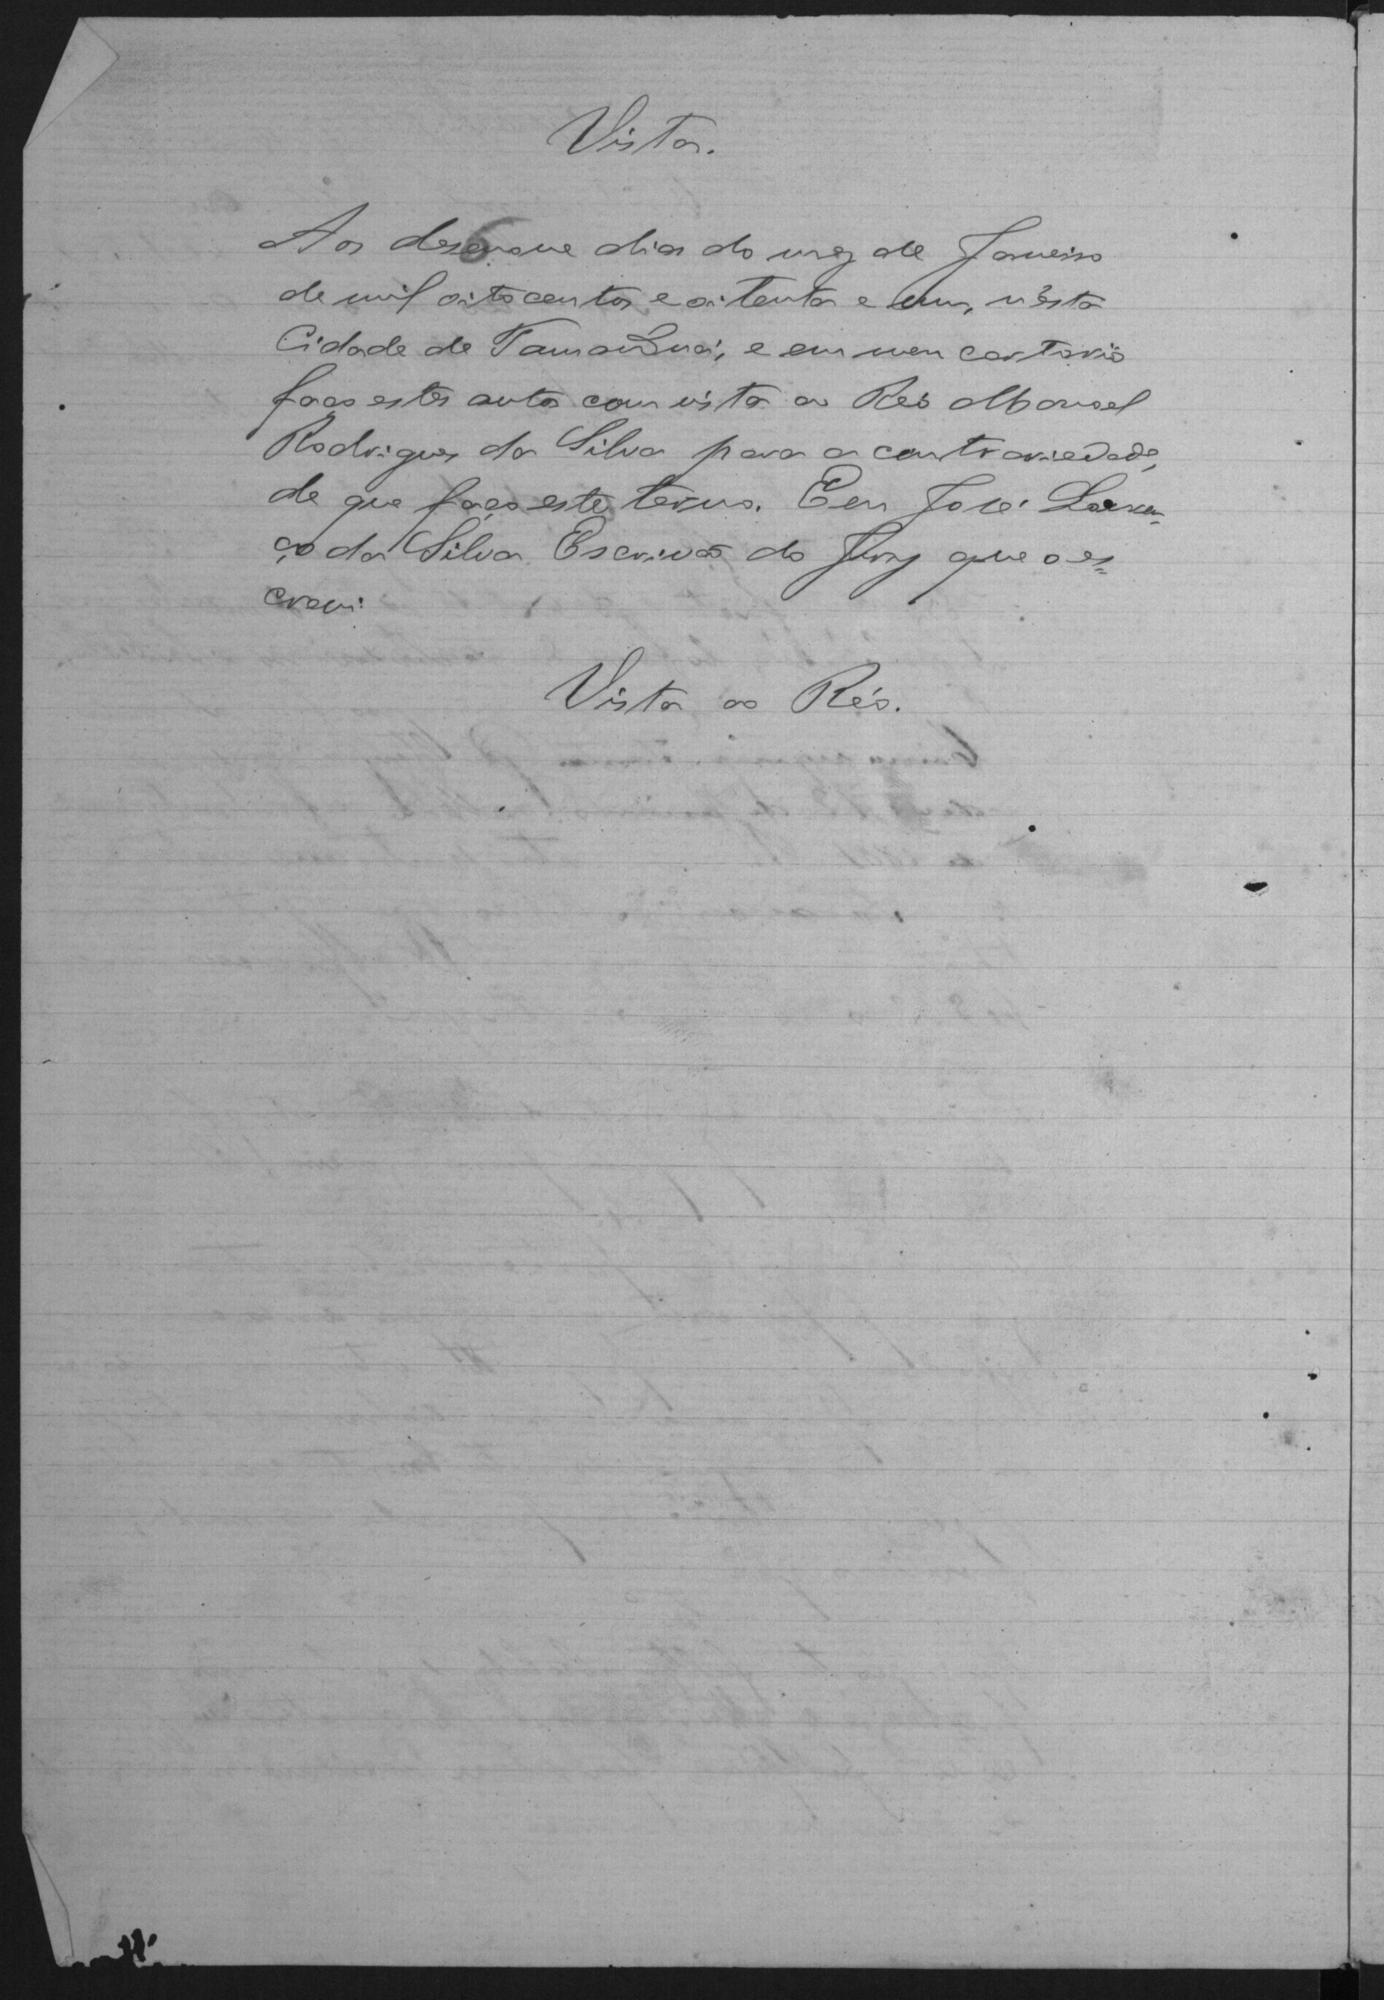 Vista.
Aos desenove dias do mez de Janeiro
de mil oito centos e oitenta e um, n'esta
Cidade de Tamanduá, e em meu cartorio
faço estes autos com vista ao Réo Manoel
Rodrigues da Silva para a contrariedade,
de que faço este termo. Eeu José Louren-
ço da Silva Escrivão do Jury que o es=
crevi.
Vista ao Réo.